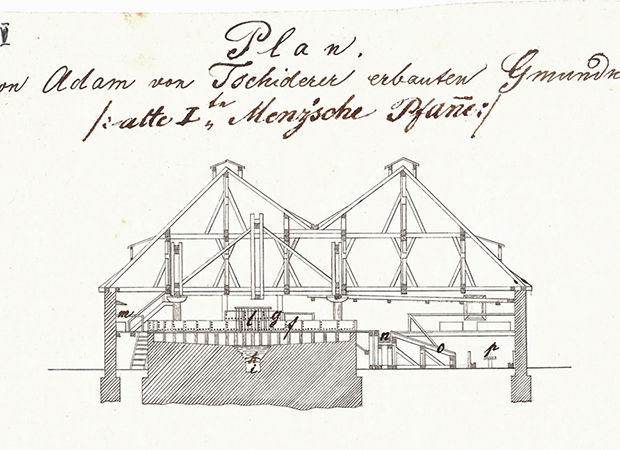 V
Plan.
on Adam von Tschiderer erbauten Gmundn
/: alte Iᵗᵉ Menz'sche Pfan̅e :/
m
l g f
h
i
n
o
p